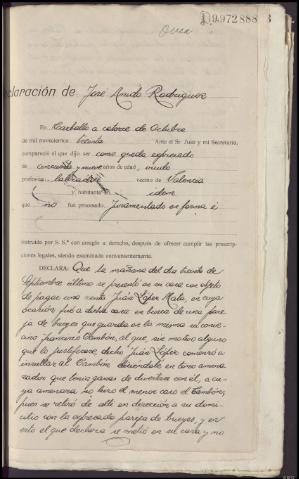 D9.972888
Declaración de José Amido Rodríguez
En Carballo a catorce de Octubre
de mil novecientos treinta Ante el Sr. Juez y mi Secretario,
compareció el que dijo ser como queda expresado
de cincuenta y nueve años de edad, viudo
profesión labrador vecino de Valencia
y habitante en idem
que no fue procesado. Juramentado en forma é
instruido por S. S.ª con arreglo a derecho, después de ofrecer cumplir las prescrip-
ciones legales, siendo examinado convenientemente.
DECLARA: Que la mañana del día treinta de
Septiembre último se presentó en su casa con objeto
de pagar una renta Juán López Mata, en cuya
ocasión fué a dicha casa en busca de una pare-
ja de bueyes que guarda en la misma su conve-
cino Francisco Cambón, al que sin motivo alguno
que lo justificase, dicho Juán López comenzó a
insultar al Cambón diciéndole en tono amena-
zador que tenía ganas de divertirse con él, a cu-
ya amenaza no hizo el menor caso el Cambón,
pues se retiró de allí en dirección a su domi-
cilio con la expresada pareja de bueyes, y en
esto el que declara se metió en su casa y no